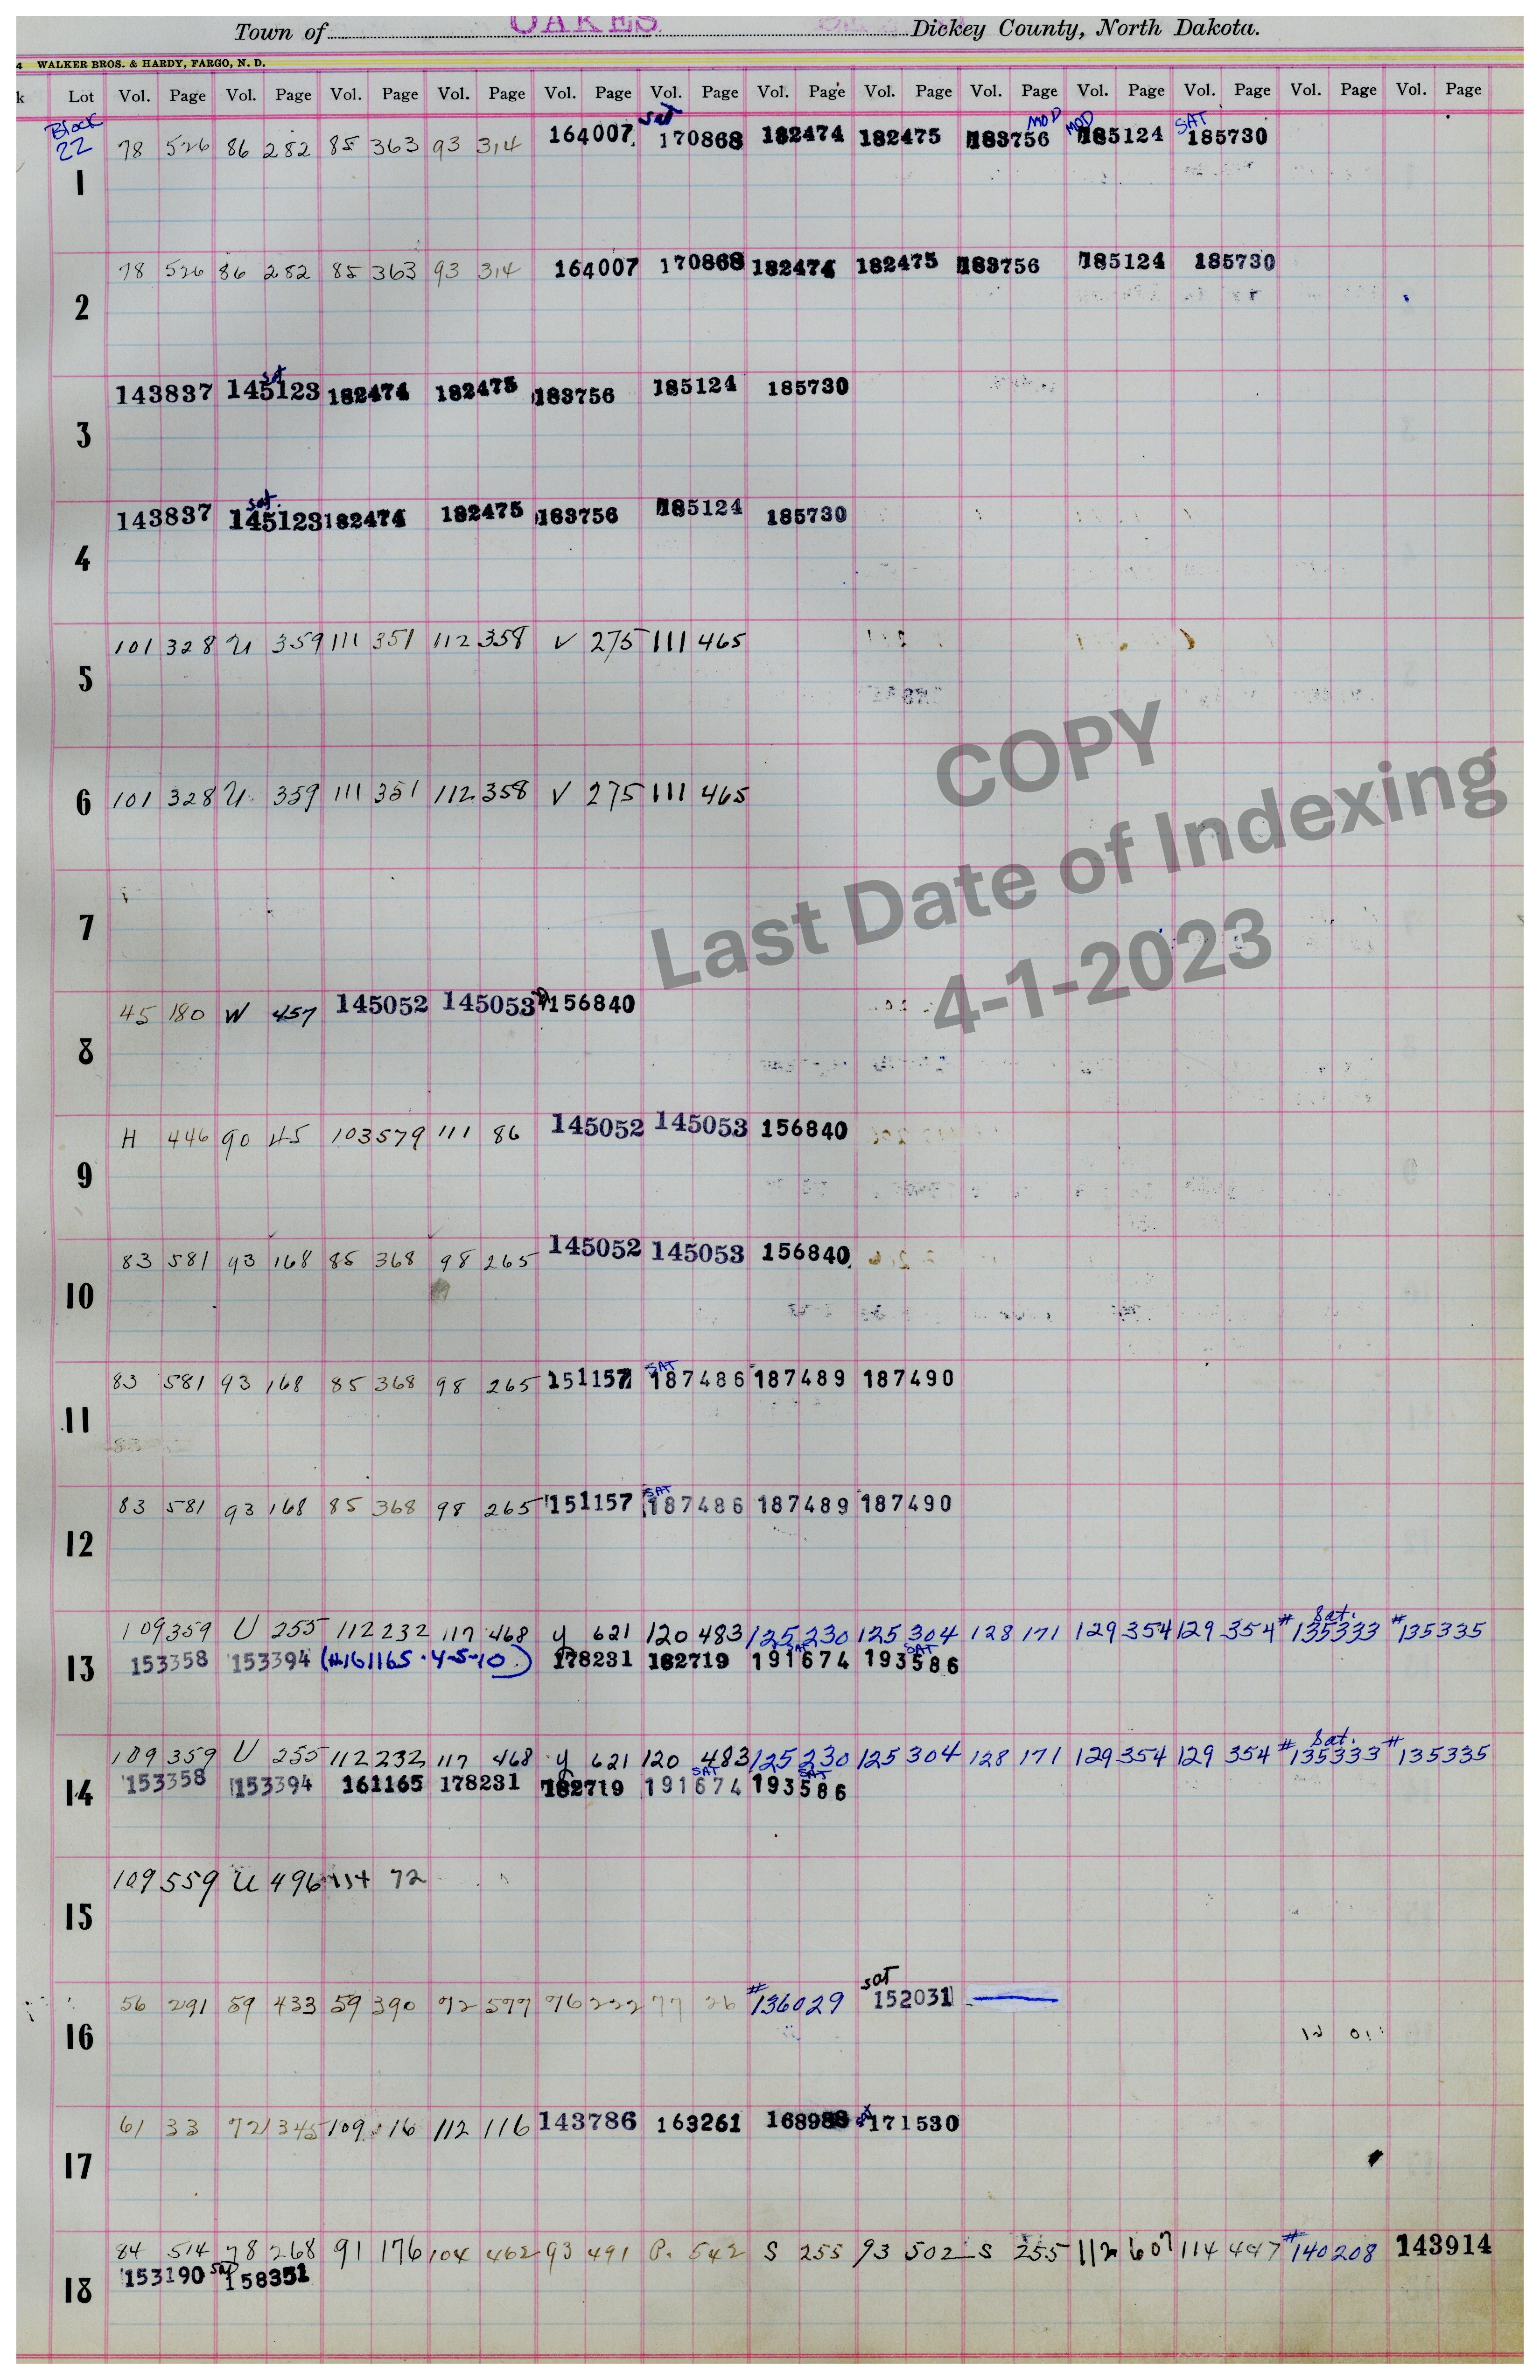 Town of OAKES Dickey County, North Dakota.
4 WALKER BROS. & HARDY, FARGO, N. D.
k Lot Vol. Page Vol. Page Vol. Page Vol. Page Vol. Page Vol. Page Vol. Page Vol. Page Vol. Page Vol. Page Vol. Page Vol. Page Vol. Page
Block 22
sat MOD MOD SAT
78 526 86 282 85 363 93 314 164007 170868 182474 182475 183756 185124 185730
1
78 526 86 282 85 363 93 314 164007 170868 182474 182475 183756 185124 185730
2
sat
143837 145123 182474 182475 183756 185124 185730
3
sat.
143837 145123 182474 182475 183756 185124 185730
4
101 328 U 359 111 351 112 358 V 275 111 465
5
COPY
6 101 328 U 359 111 351 112 358 V 275 111 465
Last Date of Indexing
7
4-1-2023
45 180 W 457 145052 145053 156840
8
H 446 90 45 103 579 111 86 145052 145053 156840
9
83 581 93 168 85 368 98 265 145052 145053 156840
10
SAT
83 581 93 168 85 368 98 265 151157 187486 187489 187490
11
SAT
83 581 93 168 85 368 98 265 151157 187486 187489 187490
12
Sat.
109 359 U 255 112 232 117 468 y 621 120 483 125 230 125 304 128 171 129 354 129 354 #135333 #135335
SAT SAT
13 153358 153394 (#161165 · 4-5-10) 178231 182719 191674 193586
Sat.
109 359 U 255 112 232 117 468 y 621 120 483 125 230 125 304 128 171 129 354 129 354 #135333 #135335
SAT SAT
14 153358 153394 161165 178231 182719 191674 193586
109 559 U 496 114 72
15
sat
56 291 59 433 59 390 72 577 76 222 77 26 #136029 152031
16
61 33 72 345 109 16 112 116 143786 163261 168988 171530
17
84 514 78 268 91 176 104 462 93 491 P. 542 S 255 93 502 S 255 112 607 114 497 #140208 143914
18 153190 sat 158351